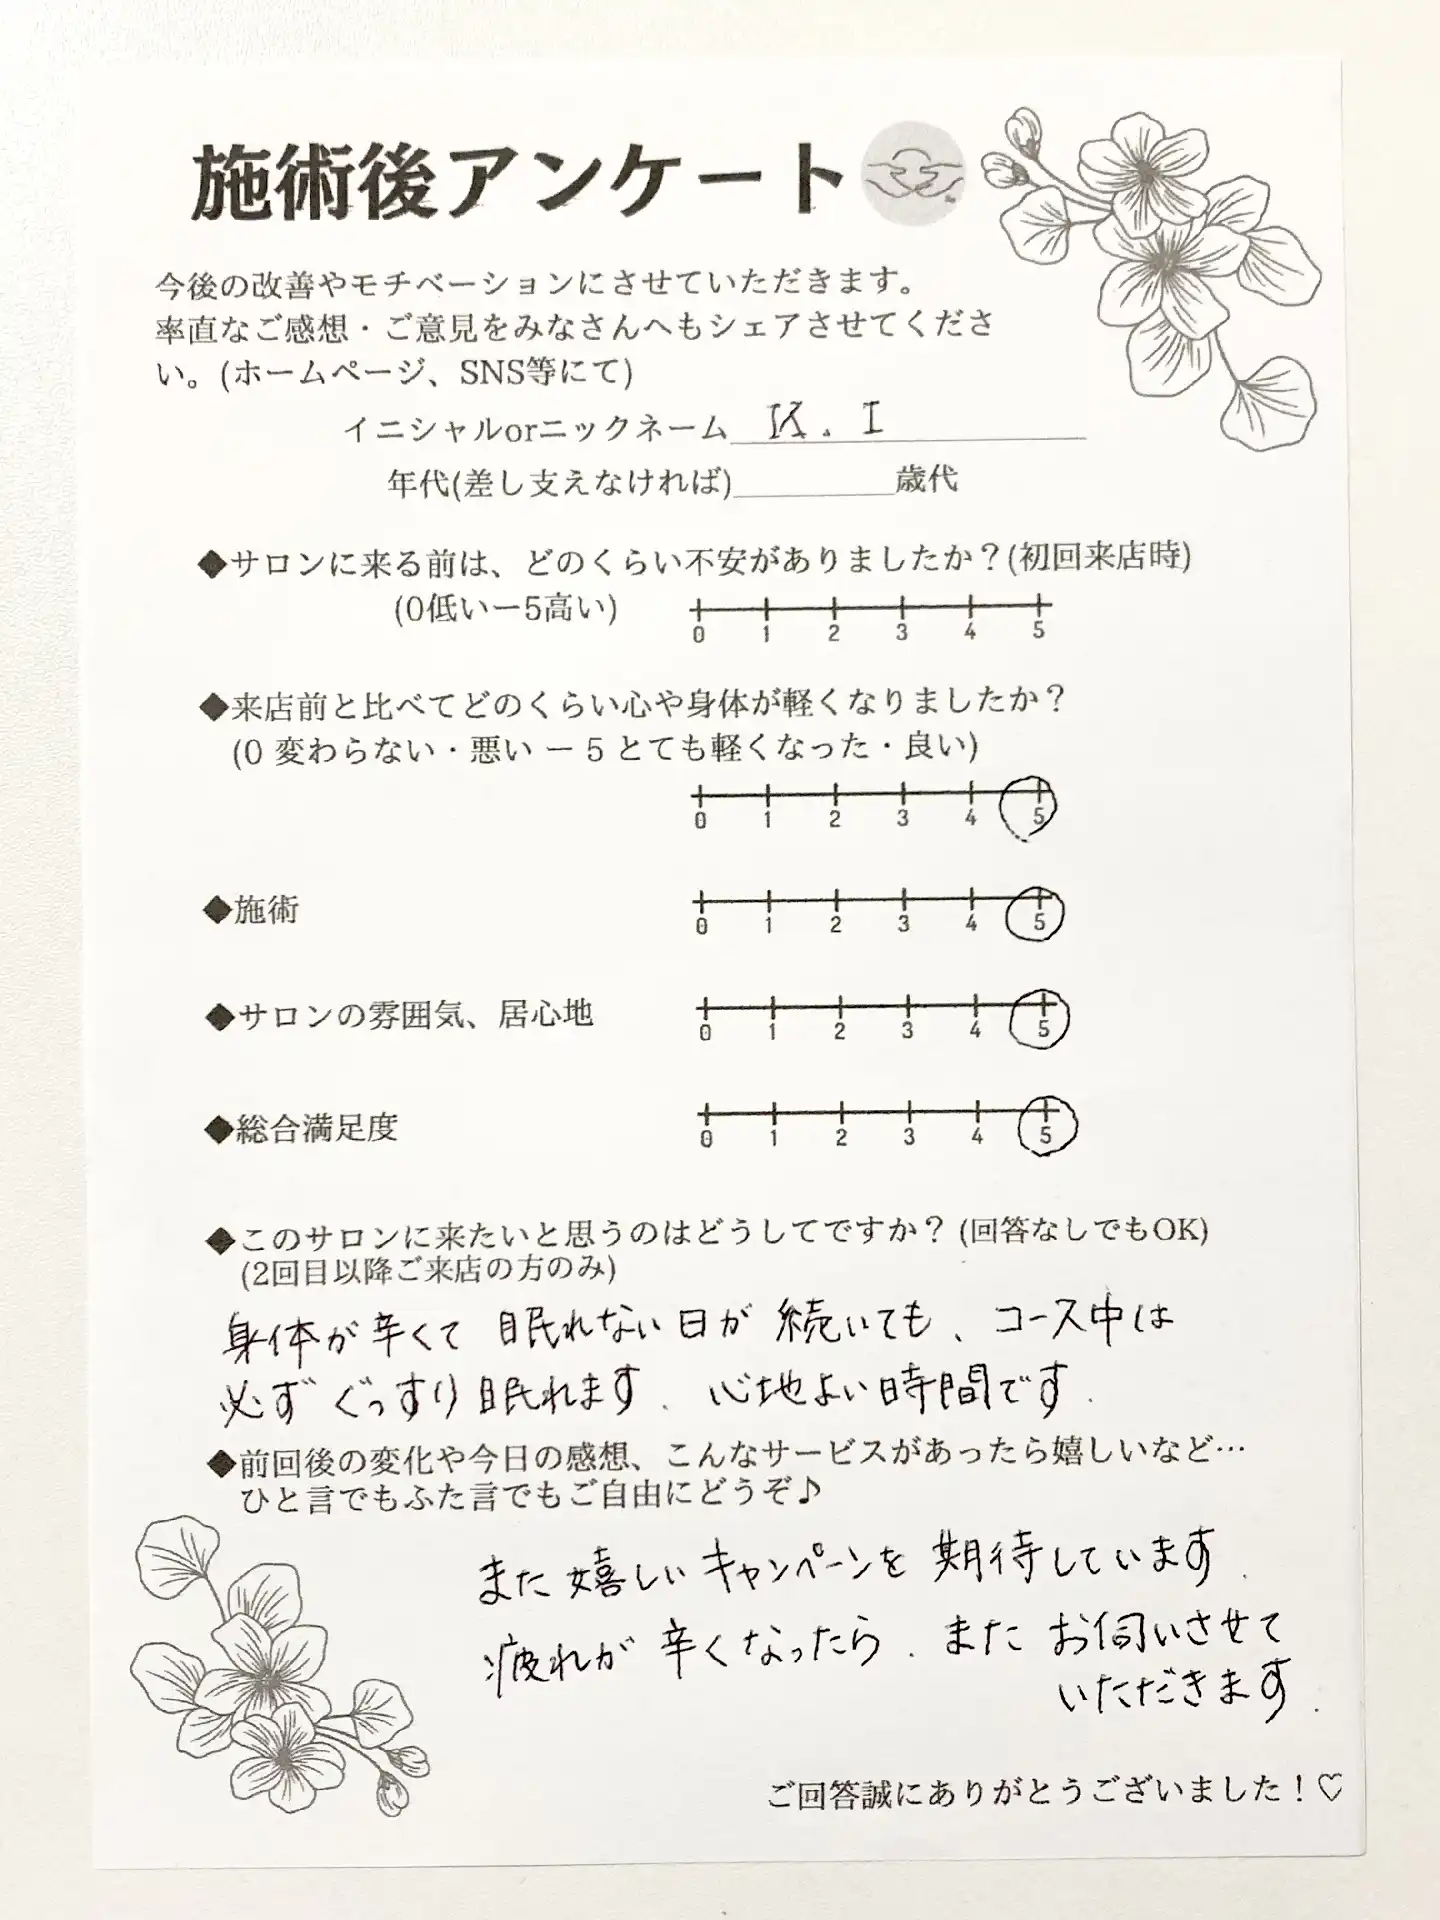 施術後アンケート
今後の改善やモチベーションにさせていただきます。
率直なご感想・ご意見をみなさんへもシェアさせてくださ
い。(ホームページ、SNS等にて)
イニシャルorニックネーム K. I
年代(差し支えなければ)________歳代
◆サロンに来る前は、どのくらい不安がありましたか？(初回来店時)
(0低いー5高い)
0 1 2 3 4 5
◆来店前と比べてどのくらい心や身体が軽くなりましたか？
(0 変わらない・悪い ー 5 とても軽くなった・良い)
0 1 2 3 4 5
◆施術
0 1 2 3 4 5
◆サロンの雰囲気、居心地
0 1 2 3 4 5
◆総合満足度
0 1 2 3 4 5
◆このサロンに来たいと思うのはどうしてですか？(回答なしでもOK)
(2回目以降ご来店の方のみ)
身体が辛くて 眠れない日が 続いても、コース中は
必ず ぐっすり 眠れます. 心地よい時間です.
◆前回後の変化や今日の感想、こんなサービスがあったら嬉しいなど…
ひと言でもふた言でもご自由にどうぞ♪
また嬉しいキャンペーンを 期待しています.
疲れが 辛くなったら. また お伺いさせて
いただきます.
ご回答誠にありがとうございました！♡